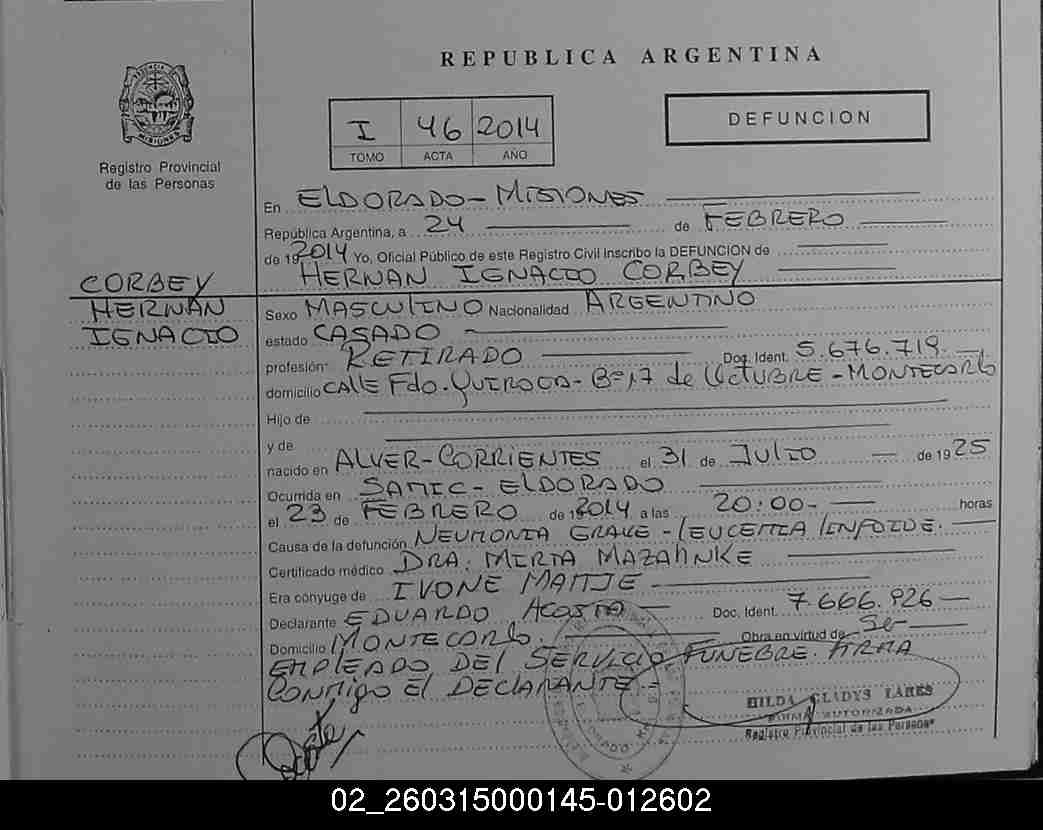 REPUBLICA ARGENTINA
PROVINCIA DE
MISIONES
Registro Provincial
de las Personas
I 46 2014
TOMO ACTA AÑO
DEFUNCION
En ELDORADO - MISIONES
República Argentina, a 24 de FEBRERO
de 19 2014 Yo, Oficial Público de este Registro Civil Inscribo la DEFUNCION de
HERNAN IGNACIO CORBEY
CORBEY
HERNAN
IGNACIO
Sexo MASCULINO Nacionalidad ARGENTINO
estado CASADO
profesión RETIRADO Doc. Ident. 5.676.719.
domicilio CALLE Fdo. QUIROGA - Bº 17 de OCTUBRE - MONTECARLO
Hijo de
y de
nacido en ALVER - CORRIENTES el 31 de JULIO de 1925
Ocurrida en SAMIC - ELDORADO
el 23 de FEBRERO de 2014 a las 20:00- horas
Causa de la defunción NEUMONIA GRAVE - LEUCEMIA LINFOIDE.
Certificado médico DRA. MIRTA MAZAHNKE
Era cónyuge de IVONE MATTJE
Declarante EDUARDO ACOSTA Doc. Ident. 7.666.926
Domicilio MONTECARLO. Obra en virtud de Ser
EMPLEADO DEL SERVICIO FUNEBRE. FIRMA
CONMIGO El DECLARANTE -
HILDA GLADYS LARES
FIRMA AUTORIZADA
Registro Provincial de las Personas
02_260315000145-012602